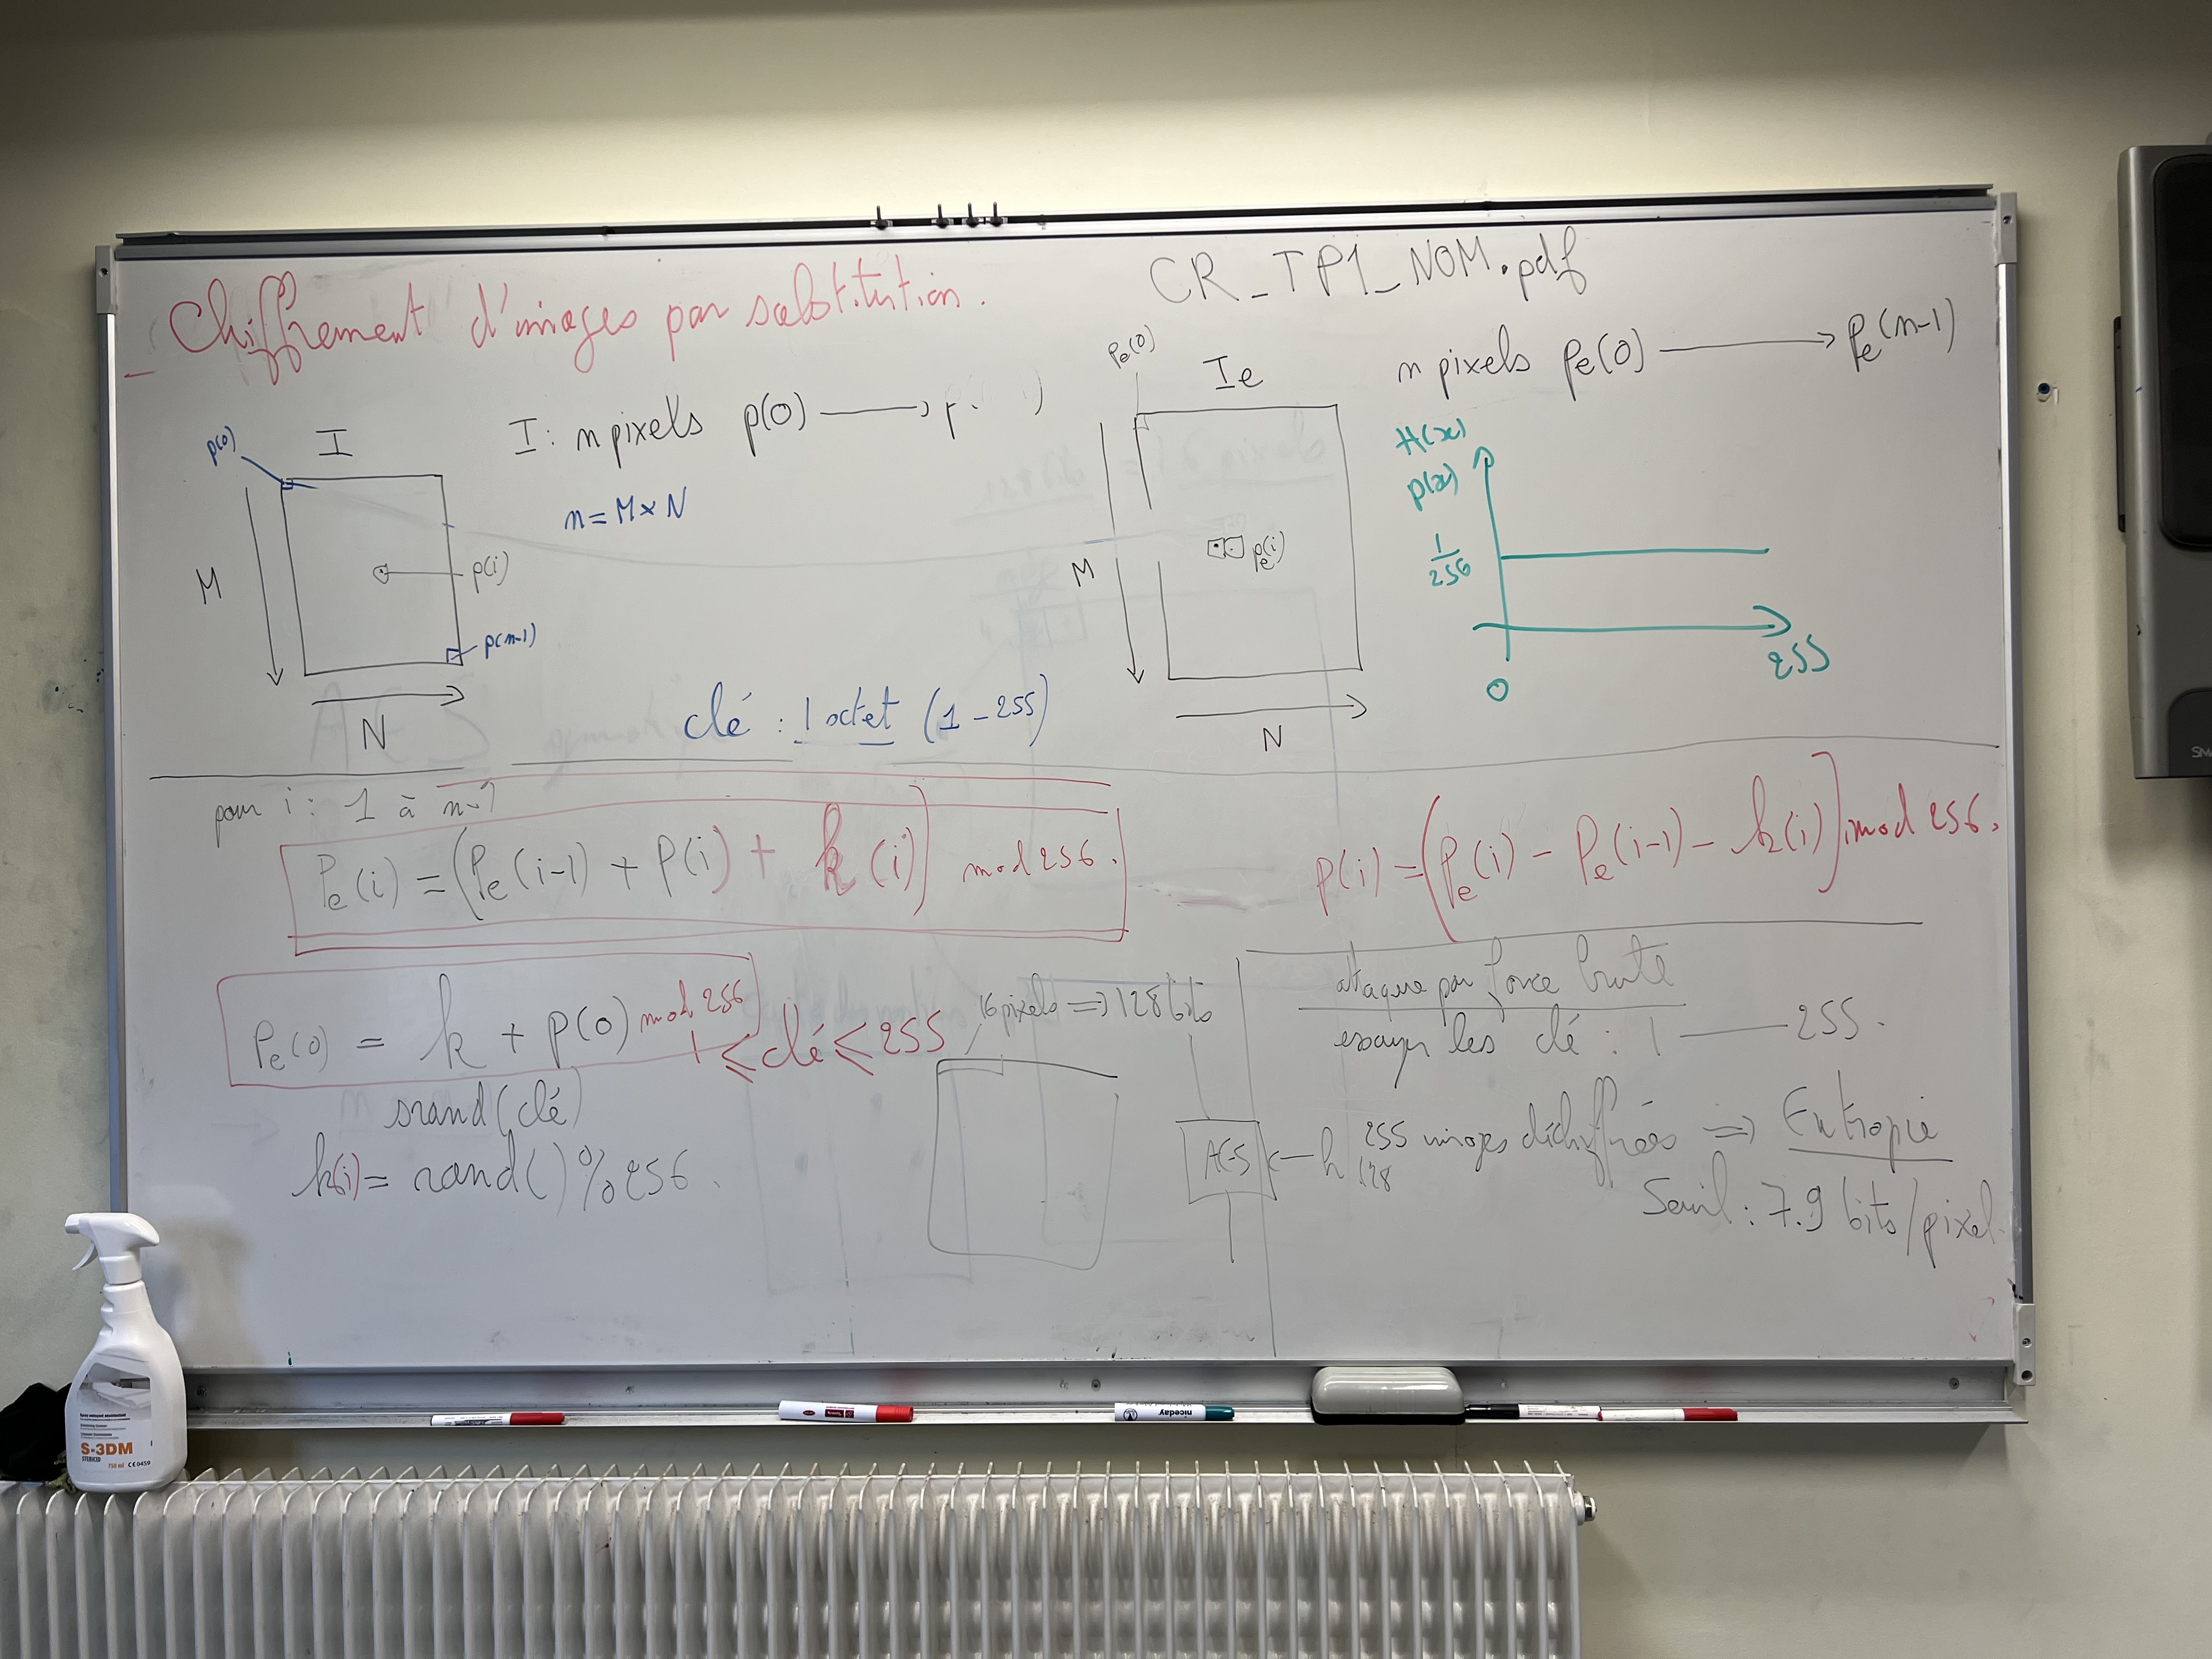 Chiffrement d'images par substitution.
CR_TP1_NOM.pdf
I
p(0)
I: n pixels p(0) → p
n = M × N
M
p(i)
p(n-1)
N
clé : 1 octet (1 - 255)
Pe(0)
Ie
n pixels Pe(0) → Pe(n-1)
M
Pe(i)
N
H(x)
p(x)
1/256
0
255
pour i : 1 à n-1
Pe(i) = (Pe(i-1) + P(i) + k(i)) mod 256.
P(i) = (Pe(i) - Pe(i-1) - k(i)) mod 256.
Pe(0) = k + p(0) mod 256
1 ⩽ clé ⩽ 255
srand(clé)
k(i) = rand() % 256.
16 pixels ⇒ 128 bits
AES ← k
128
attaque par force brute
essayer les clé : 1 — 255.
255 images déchiffrées ⇒ Entropie
Seuil : 7.9 bits/pixel.
S-3DM
750 ml CE0459
niceday
SM